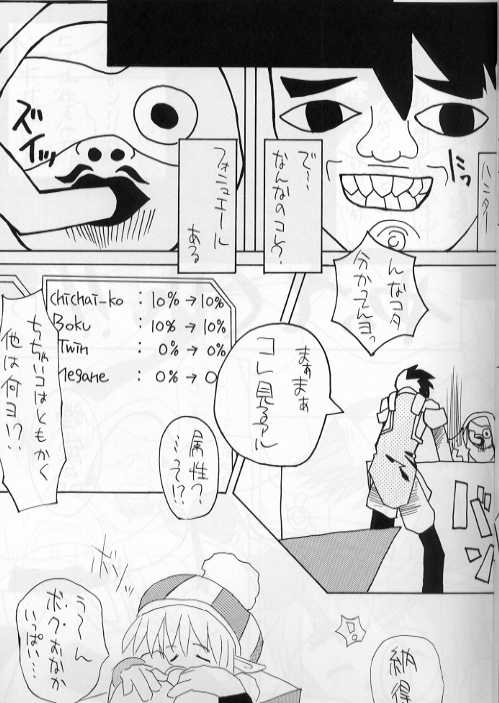 ニッ
ハンター
で…
なんなのコレ?
フォニュエール
ある
ズイッ
んなコタ
分かってんヨっ
まぁまぁ
コレ見るアル
バン
chichai-ko : 10% → 10%
Boku : 10% → 10%
Twin : 0% → 0%
Megane : 0% → 0
属性?
ちっちゃいコはともかく
他は何ヨ!?
う～ん
ボクおなか
いっぱい…
納得